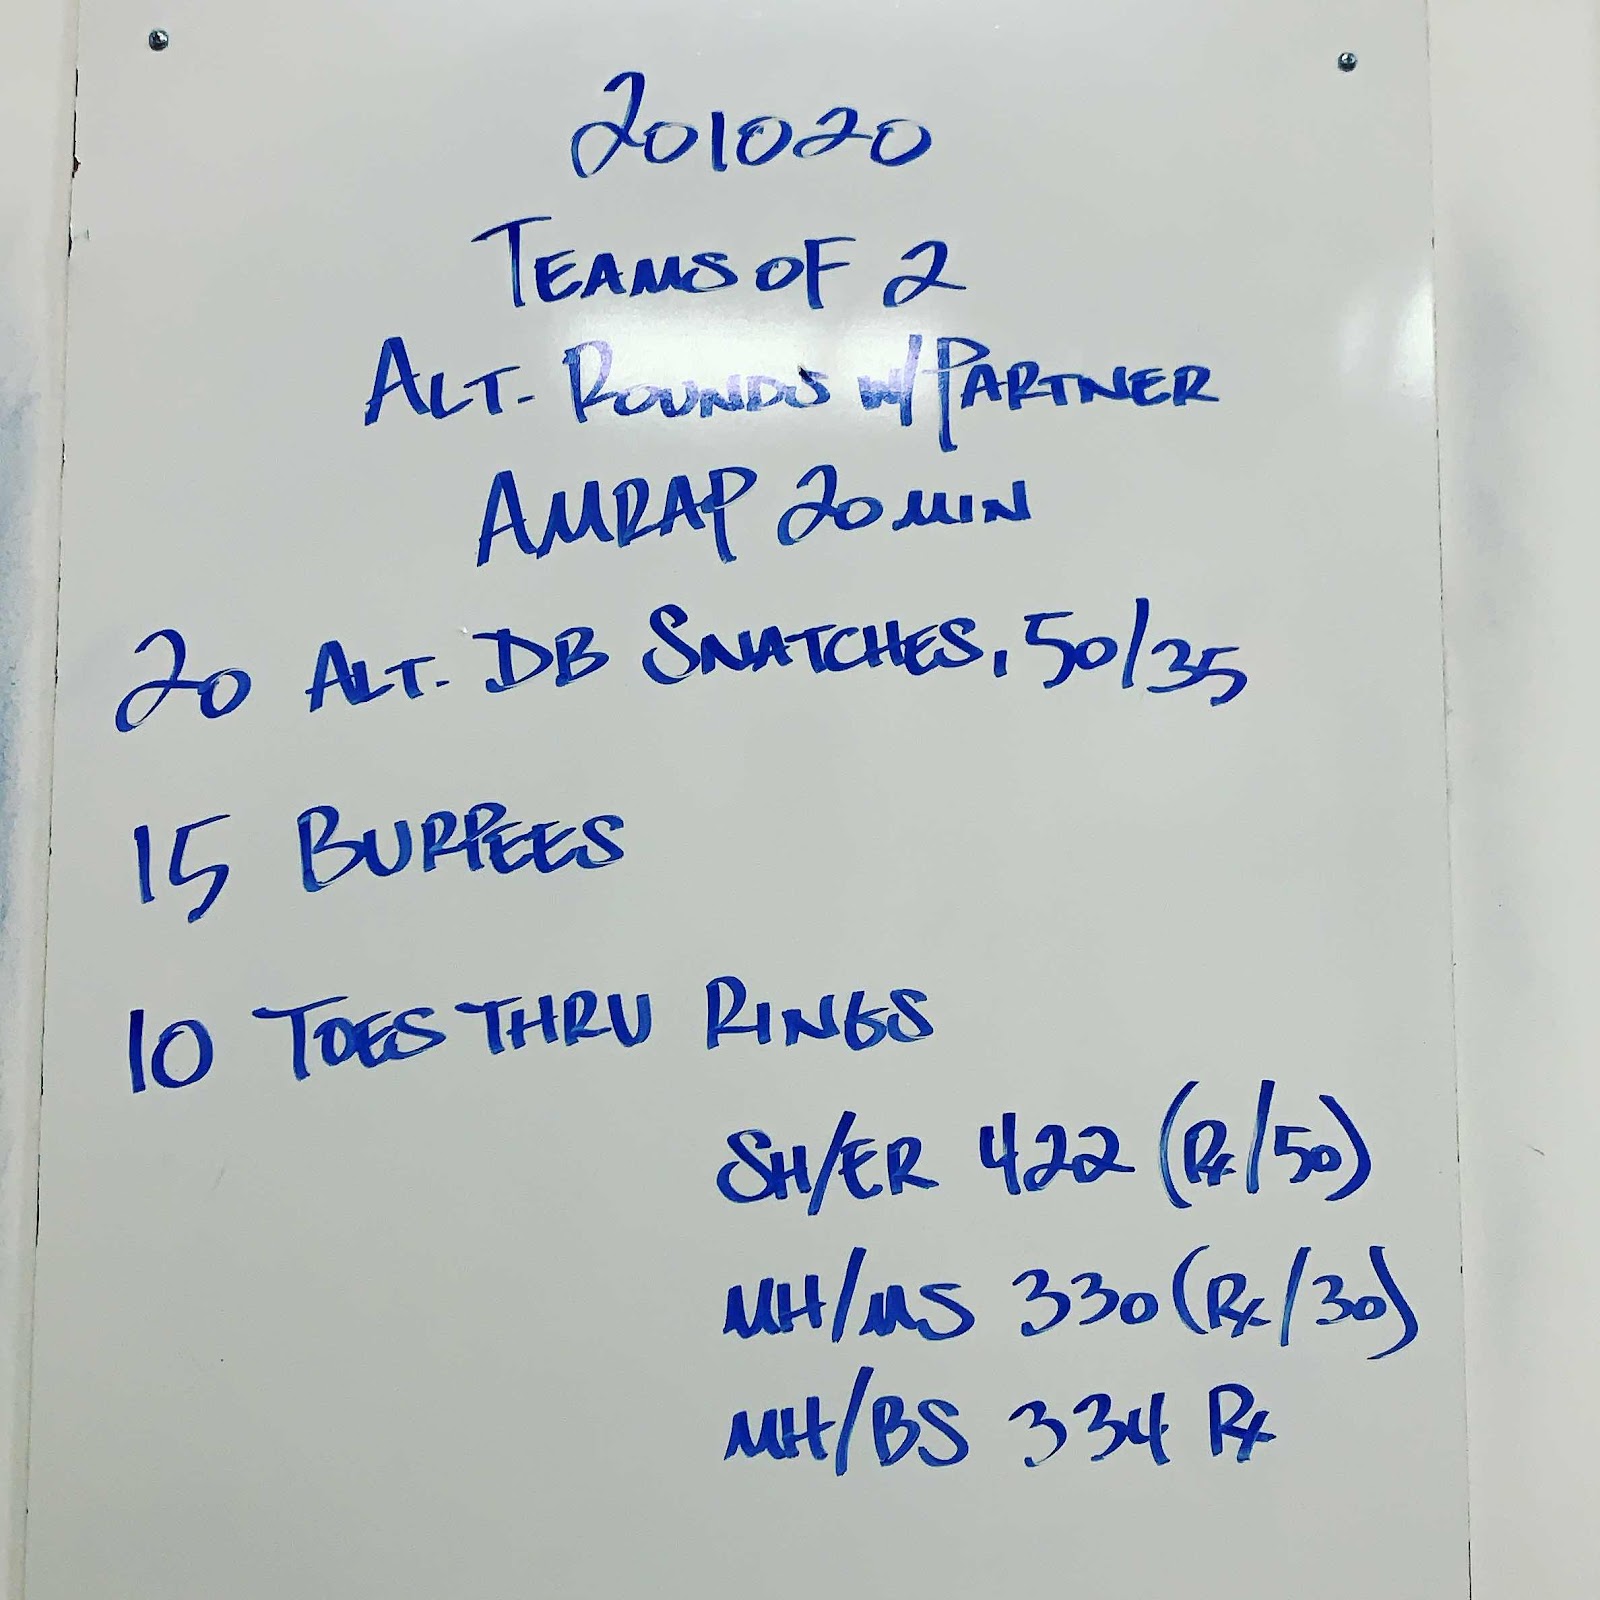 201020
TEAMS OF 2
ALT. ROUNDS W/ PARTNER
AMRAP 20 MIN
20 ALT. DB SNATCHES, 50/35
15 BURPEES
10 TOES THRU RINGS
SH/ER 422 (Rx/50)
MH/MS 330 (Rx/30)
MH/BS 334 Rx